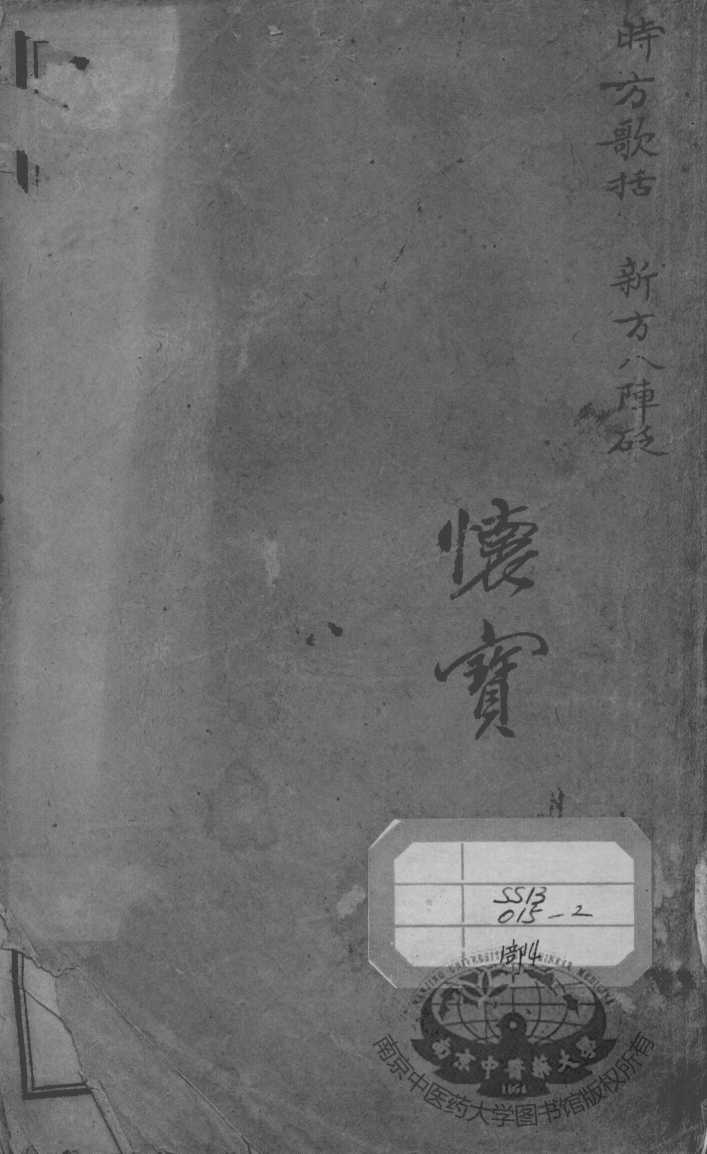 時方歌括 新方八陣砭
懷寶
SS13
015-2
南京中醫藥大學
1954
南京中医药大学图书馆版权所有